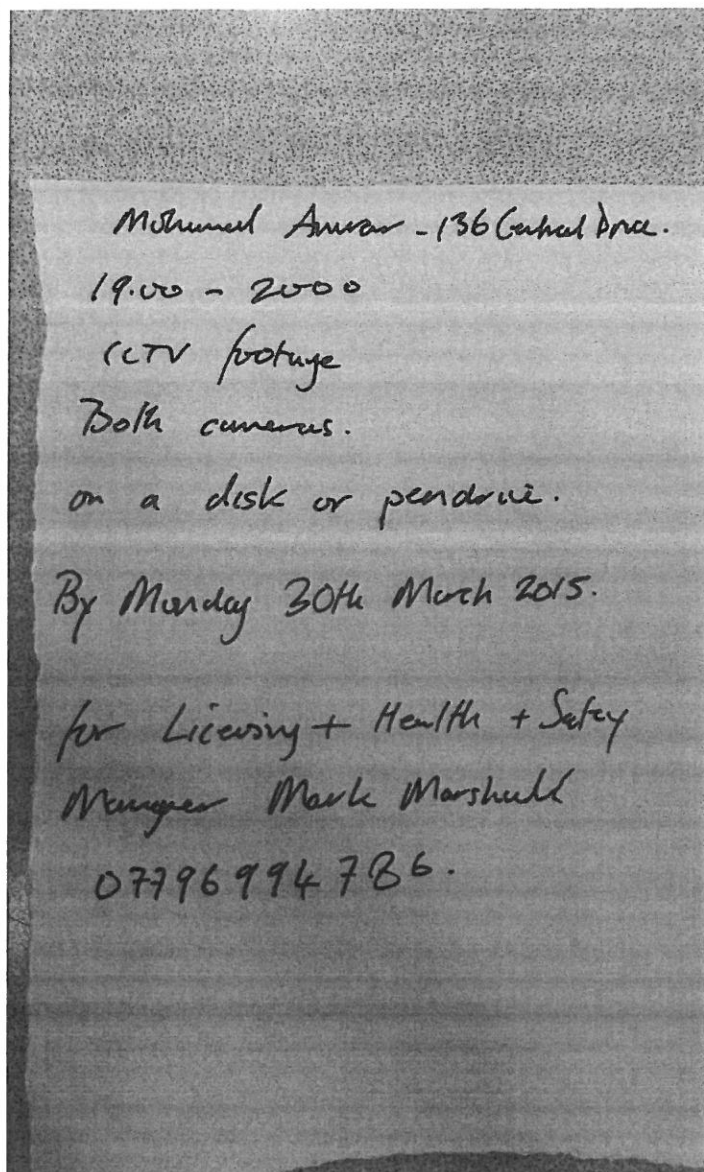 Mohamed Anwar - 136 Central Drive.
19.00 - 2000
CCTV footage
Both cameras.
on a disk or pendrive.
By Monday 30th March 2015.
for Licensing + Health + Safey
Manager Mark Marshall
07796994786.